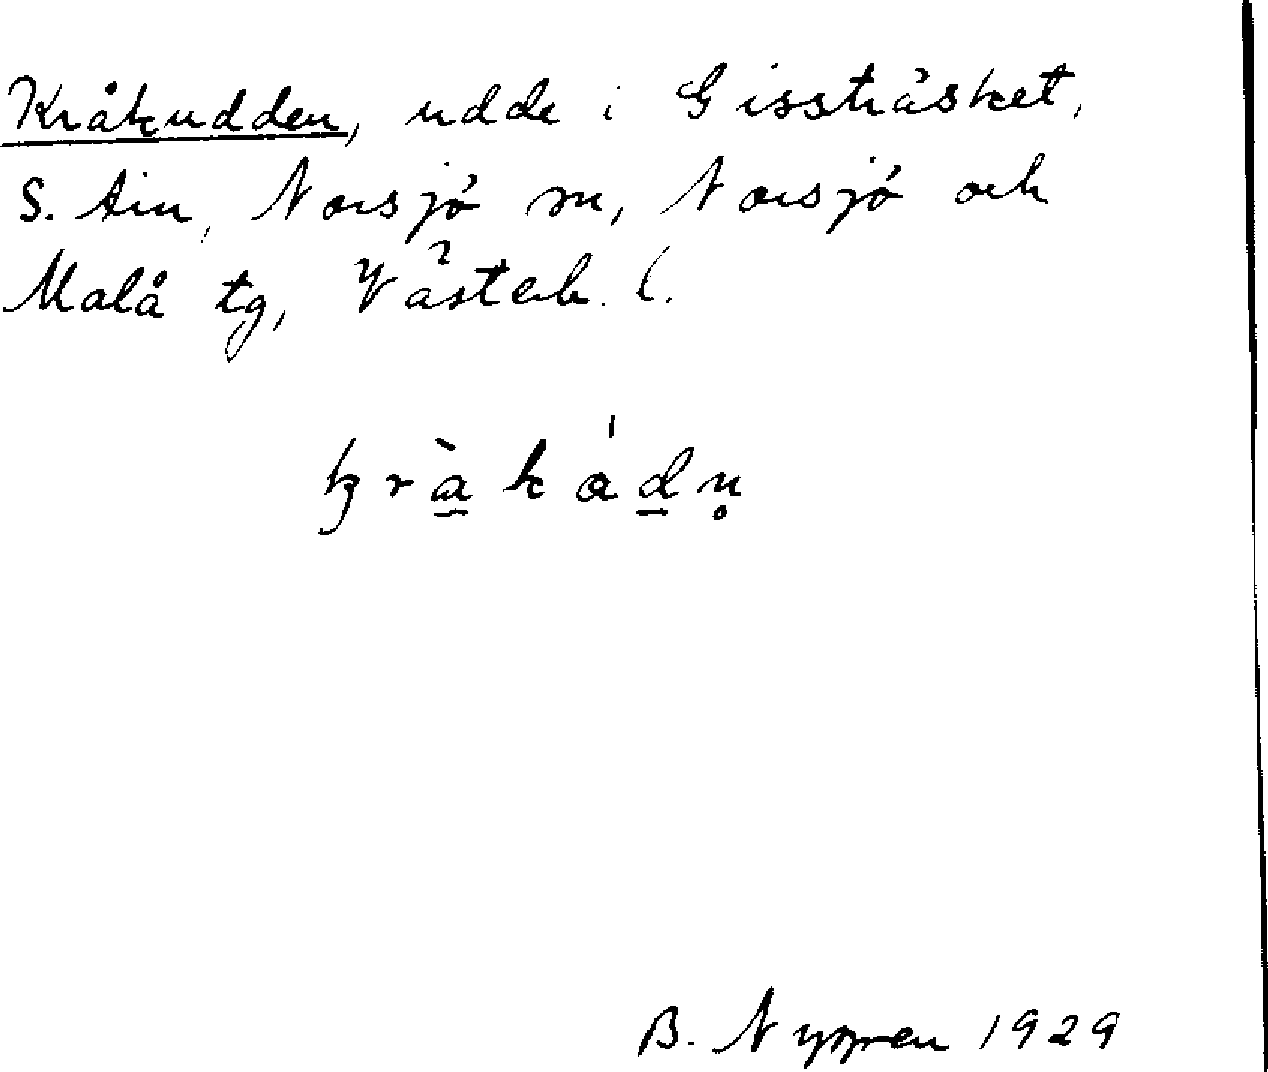 Kråkudden, udde i Gissträsket,
S. Åm, Norsjö sn, Norsjö och
Malå tg, Västerb. l.
kràkádn̥
B. Nygren 1929